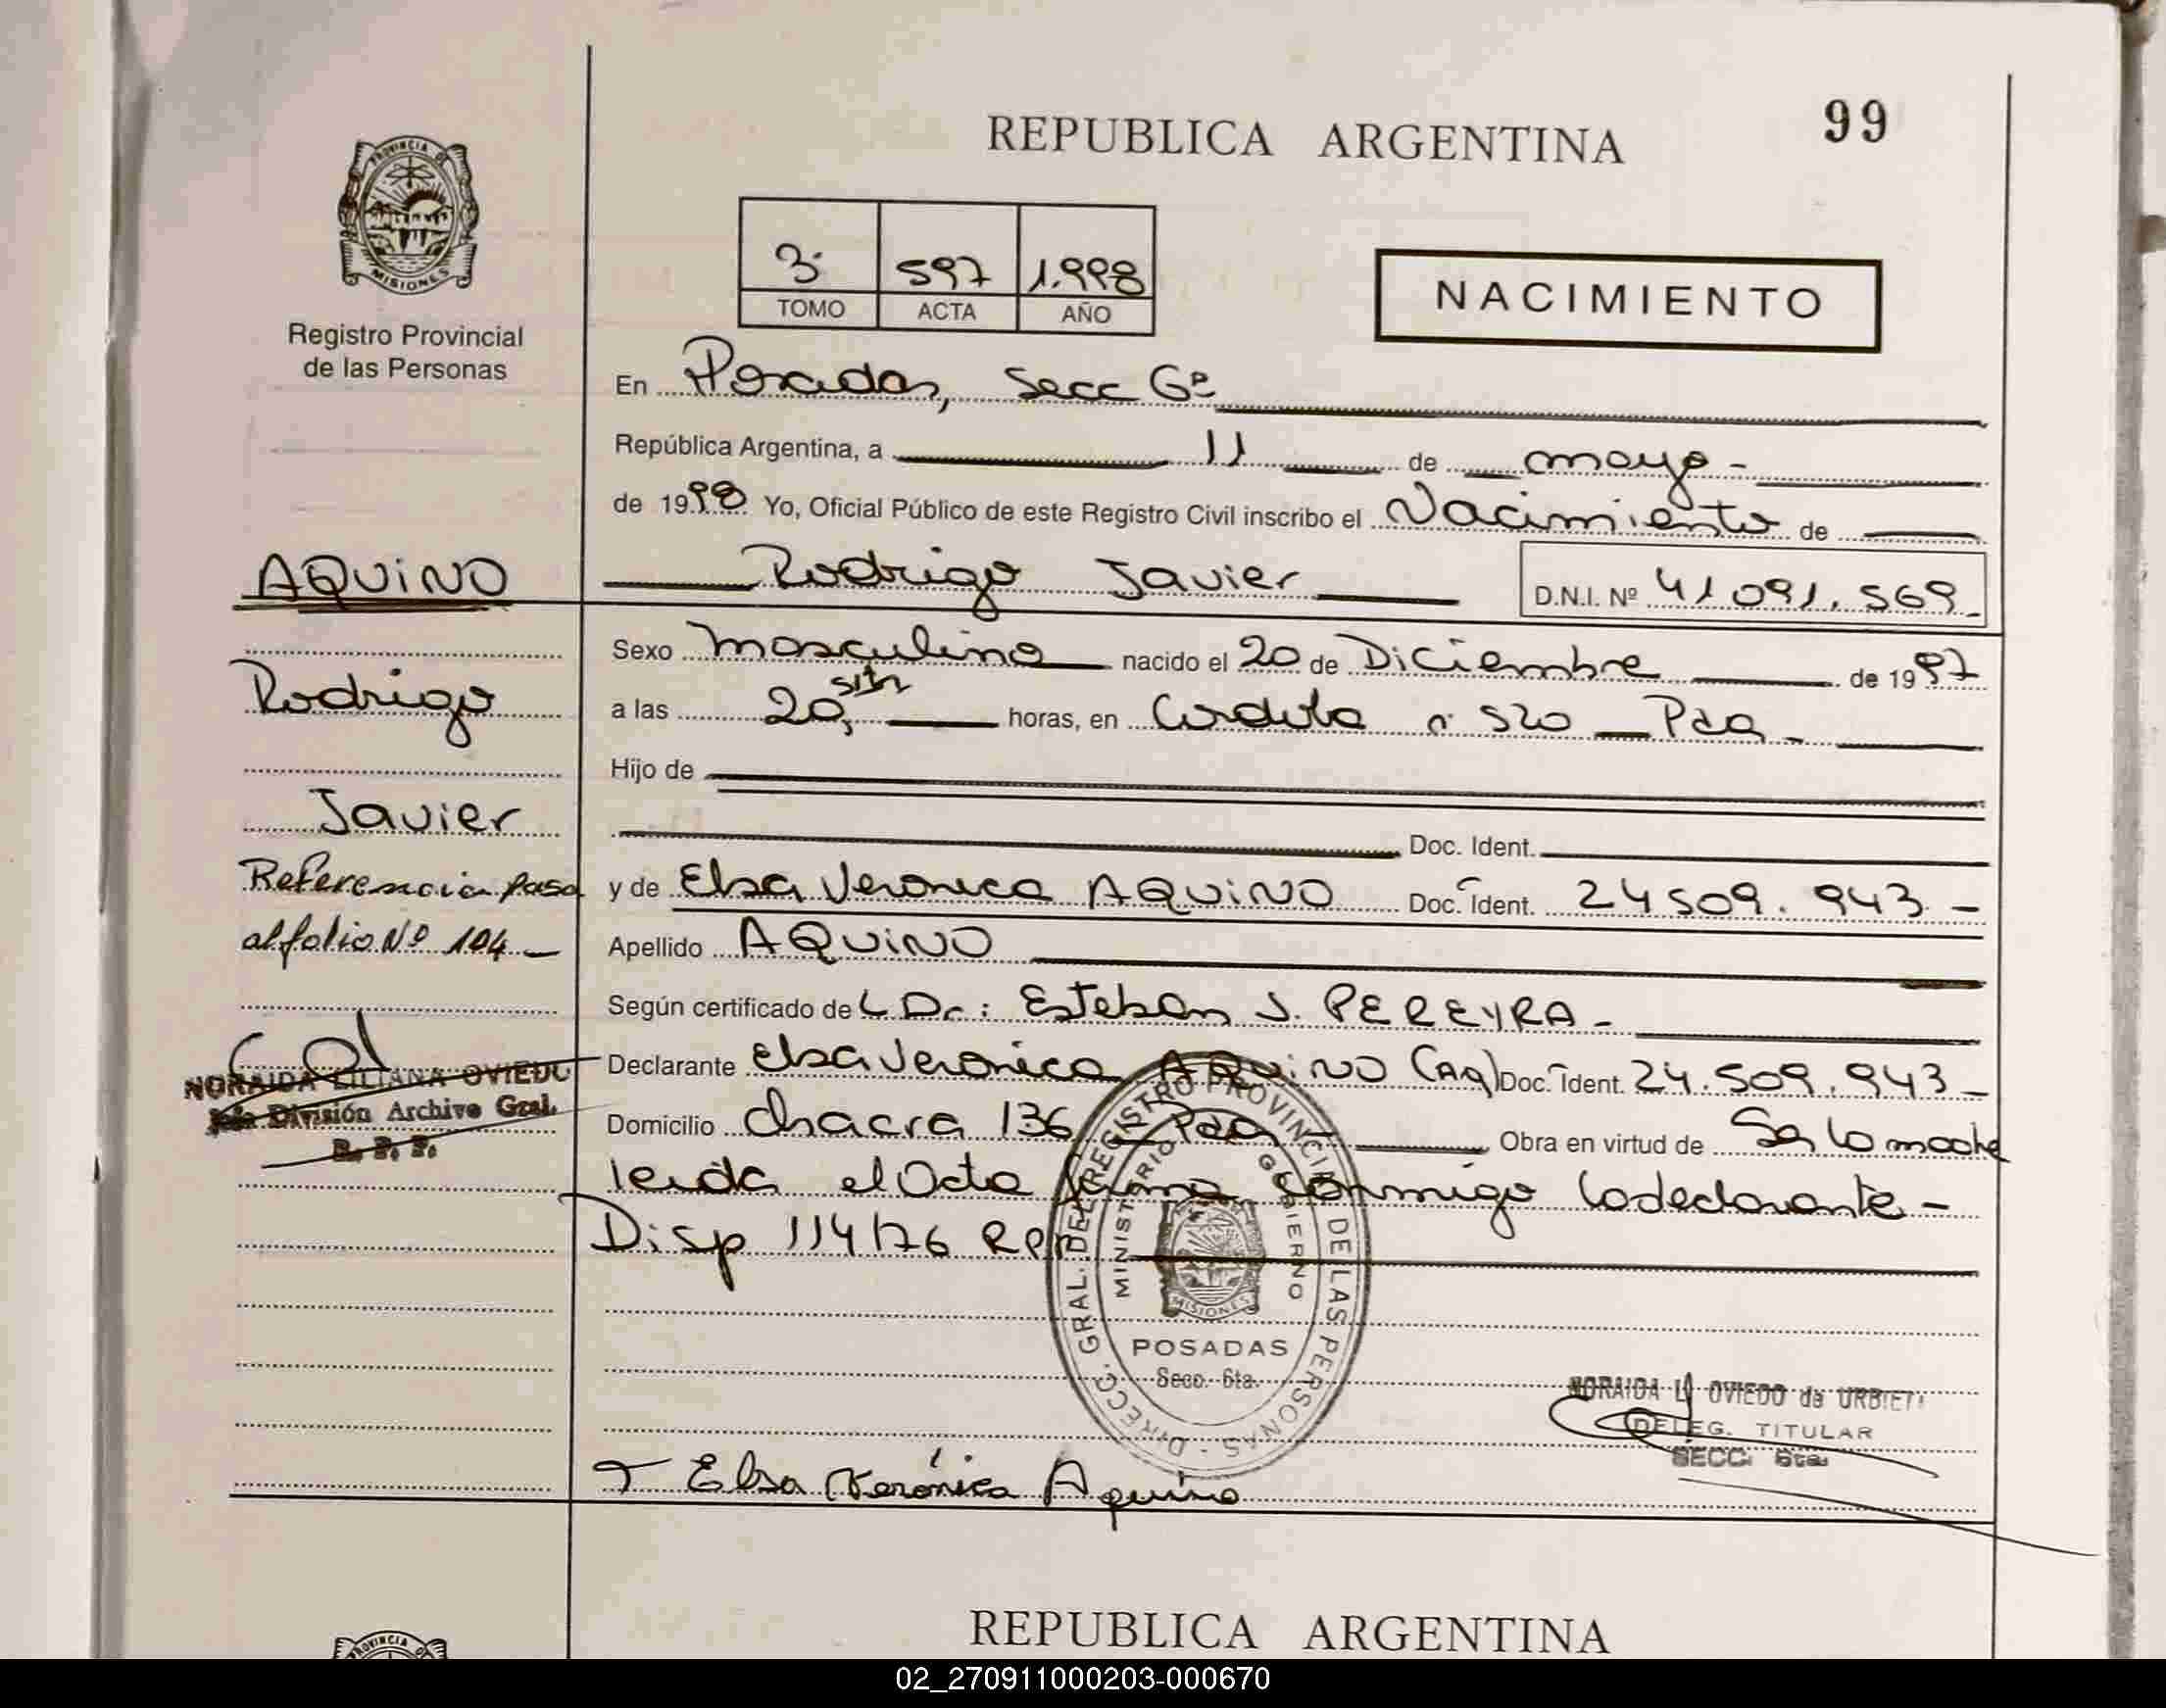 99
REPUBLICA ARGENTINA
PROVINCIA DE MISIONES
Registro Provincial
de las Personas
3 597 1.998
TOMO ACTA AÑO
NACIMIENTO
En Posadas, Secc 6ª
República Argentina, a 11 de mayo -
de 1998 Yo, Oficial Público de este Registro Civil inscribo el Nacimiento de
AQUiNO
Rodrigo Javier
D.N.I. Nº 41 091.569
Sexo masculino nacido el 20 de Diciembre de 1997
Rodrigo
a las 20, horas, en Cordoba nº 520 Pdas -
Hijo de
Javier
Doc. Ident.
Referencia pasa
al folio Nº 104
y de Elsa Veronica AQUiNO Doc. Ident. 24 509.943 -
Apellido AQUiNO
Según certificado de L Dr: Esteban J. PEREYRA -
Declarante Elsa Veronica AQUiNO (Arg) Doc. Ident. 24.509.943 -
NORAIDA LILIANA OVIEDO
Jefe División Archivo Gral.
R. P. P.
Domicilio chacra 136 Pdas Obra en virtud de Ser la madre
leida el Acta firma conmigo la declarante -
Disp 114/76 RPP
DIRECC. GRAL. DEL REGISTRO PROVINCIAL DE LAS PERSONAS
MINISTERIO GOBIERNO
MISIONES
POSADAS
Secc. 6ta.
NORAIDA L. OVIEDO de URBIETA
DELEG. TITULAR
SECC. 6ta.
Elsa Verónica Aquino
REPUBLICA ARGENTINA
PROVINCIA
02_270911000203-000670